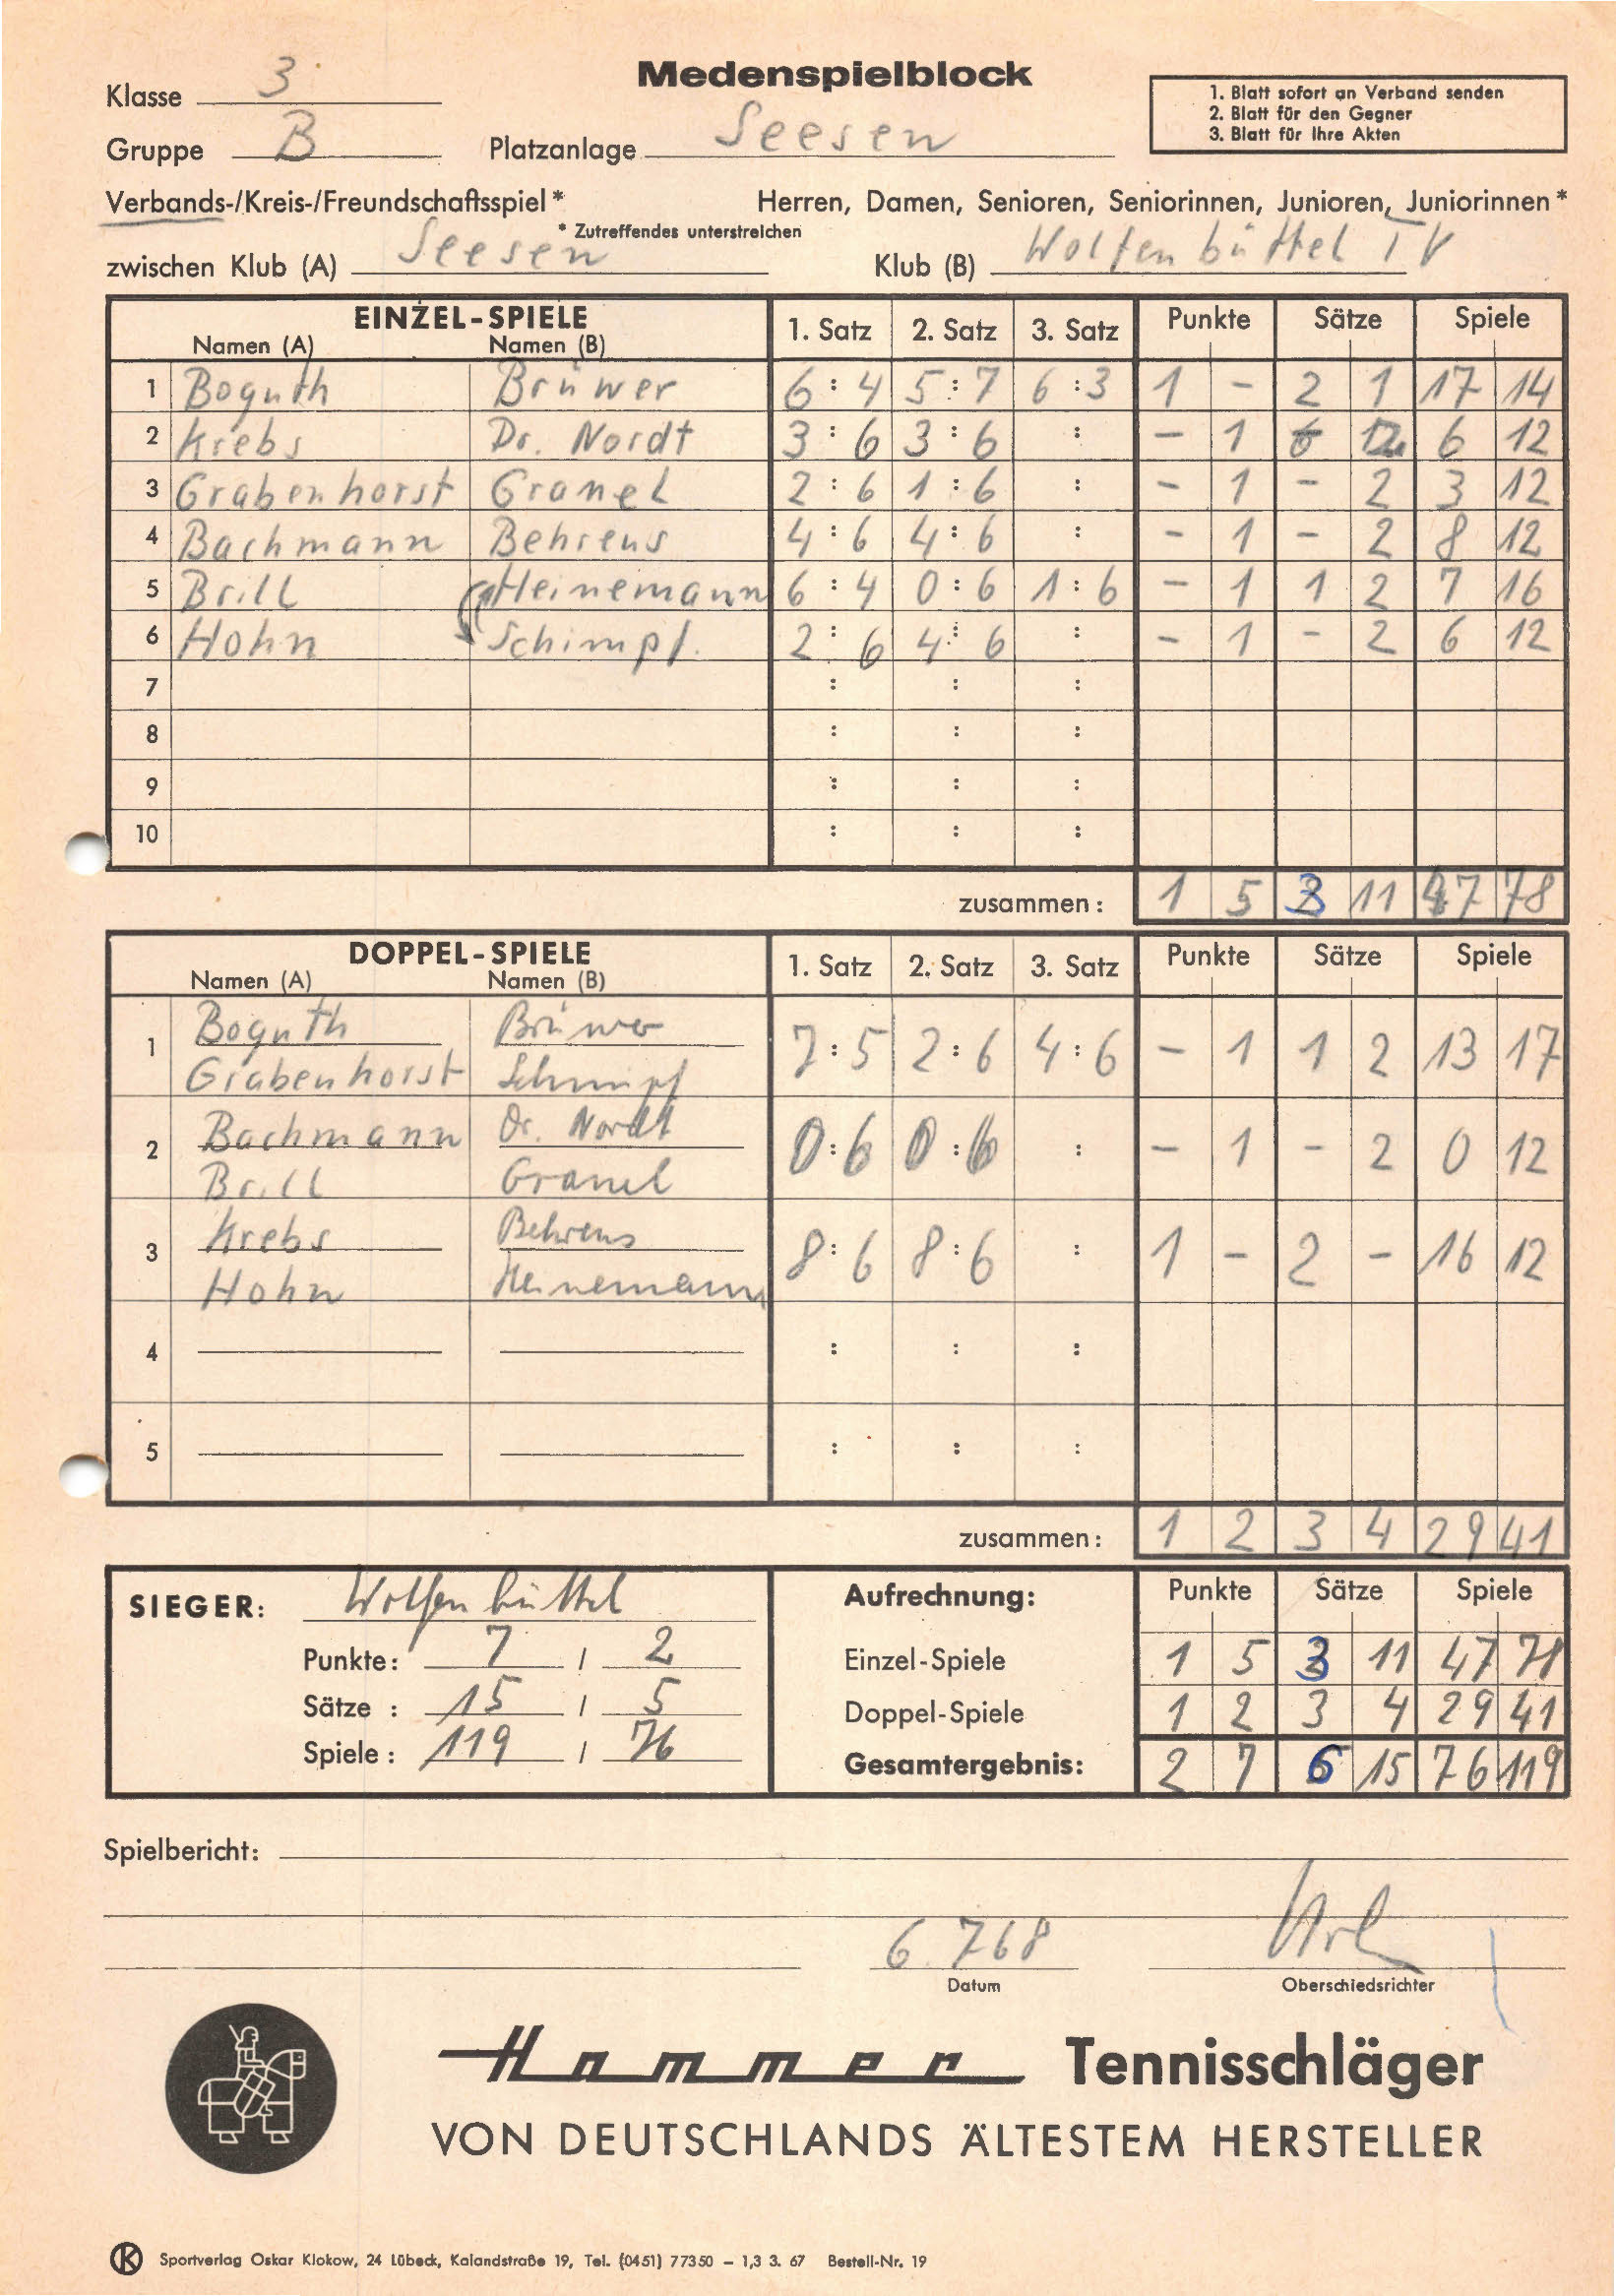 Medenspielblock
Klasse 3
Gruppe B Platzanlage Seesen
1. Blatt sofort an Verband senden
2. Blatt für den Gegner
3. Blatt für Ihre Akten
Verbands-/Kreis-/Freundschaftsspiel * Herren, Damen, Senioren, Seniorinnen, Junioren, Juniorinnen *
* Zutreffendes unterstreichen
zwischen Klub (A) Seesen Klub (B) Wolfenbüttel TV
EINZEL-SPIELE 1. Satz 2. Satz 3. Satz Punkte Sätze Spiele
Namen (A) Namen (B)
1 Boguth Brüwer 6:4 5:7 6:3 1 - 2 1 17 14
2 Krebs Dr. Nordt 3:6 3:6 : - 1 6 12 
3 Grabenhorst Gramel 2:6 1:6 : - 1 - 2 3 12
4 Bachmann Behrens 4:6 4:6 : - 1 - 2 8 12
5 Brill Heinemann 6:4 0:6 1:6 - 1 1 2 7 16
6 Hohn Schimpf. 2:6 4:6 : - 1 - 2 6 12
7 : : :
8 : : :
9 : : :
10 : : :
zusammen: 1 5 3 11 47 78
DOPPEL-SPIELE 1. Satz 2. Satz 3. Satz Punkte Sätze Spiele
Namen (A) Namen (B)
Boguth Brüwer
1 7:5 2:6 4:6 - 1 1 2 13 17
Grabenhorst Schimpf
Bachmann Dr. Nordt
2 0:6 0:6 : - 1 - 2 0 12
Brill Gramel
Krebs Behrens
3 8:6 8:6 : 1 - 2 - 16 12
Hohn Heinemann
4 : : :
5 : : :
zusammen: 1 2 3 4 29 41
SIEGER: Wolfenbüttel
Punkte: 7 / 2
Sätze : 15 / 5
Spiele : 119 / 76
Aufrechnung: Punkte Sätze Spiele
Einzel-Spiele 1 5 3 11 47 78
Doppel-Spiele 1 2 3 4 29 41
Gesamtergebnis: 2 7 6 15 76 119
Spielbericht:
6.768
Datum Oberschiedsrichter
Hammer Tennisschläger
VON DEUTSCHLANDS ÄLTESTEM HERSTELLER
K Sportverlag Oskar Klokow, 24 Lübeck, Kalandstraße 19, Tel. (0451) 77350 – 1,3 3. 67 Bestell-Nr. 19